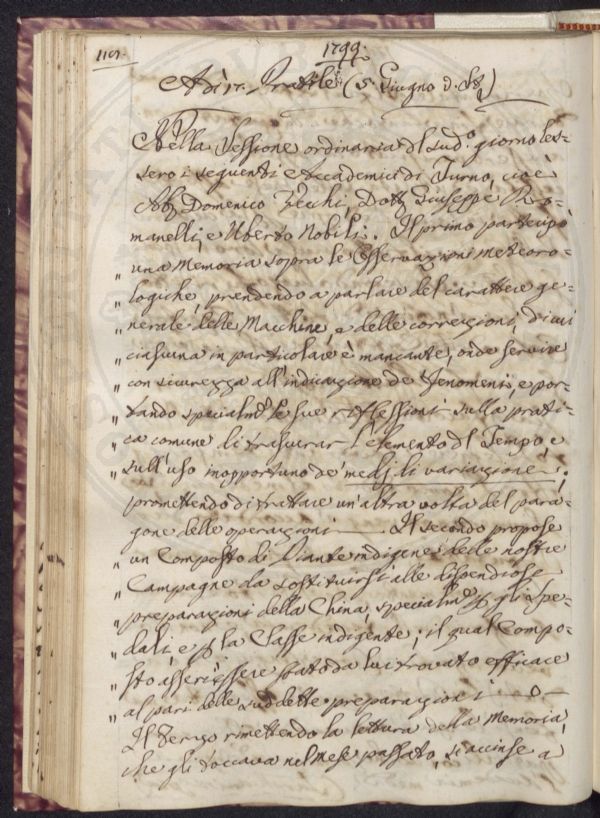 1799.
Adì 17. Pratile (5. Giugno d. S.)
Nella Sessione ordinaria del sud.º giorno les=
sero i seguenti Accademici di Turno, cioè
Ab. Domenico Zecchi, Dott. Giuseppe Ro=
manelli, e Uberto Nobili: Il primo partecipò
„ una Memoria sopra le Osservazioni meteoro=
„ logiche, prendendo a parlare del carattere ge=
„ nerale delle Macchine, e delle correzioni, di cui
„ ciascuna in particolare è mancante, onde servire
„ con sicurezza all'indicazione de' Fenomeni, e por=
„ tando specialm.e le sue riflessioni sulla prati=
„ ca comune di trascurar l'elemento del Tempo, e
„ sull'uso inopportuno de' medj di variazione;
promettendo di trattare un'altra volta del para=
gone delle operazioni. Il secondo propose
„ un Composto di Piante indigene delle nostre
„ Campagne da sostituirsi alle dispendiose
„ preparazioni della China, specialm.e p. gli Spe=
„ dali, e p. la Classe indigente; il qual Compo=
„ sto asserì essere stato da lui trovato efficace
„ al pari delle suddette preparazioni
Il Terzo rimettendo la lettura della Memoria,
che gli toccava nel mese passato, si accinse a